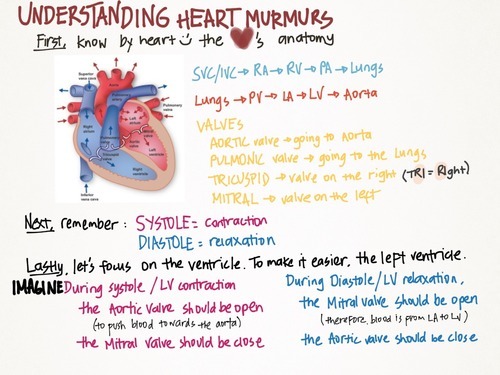 UNDERSTANDING HEART MURMURS
First, know by heart the 's anatomy
SVC/IVC → RA → RV → PA → Lungs
Lungs → PV → LA → LV → Aorta
VALVES
AORTIC valve → going to Aorta
PULMONIC valve → going to the Lungs
TRICUSPID → valve on the right (TRI = Right)
MITRAL → valve on the left
Superior vena cava
Aorta
Pulmonary
Left atrium
Mitral valve
Right atrium
Left ventricle
Tricuspid valve
Right ventricle
Inferior vena cava
Next, remember: SYSTOLE = contraction
DIASTOLE = relaxation
Lastly, let's focus on the ventricle. To make it easier, the left ventricle.
IMAGINE During systole / LV contraction
the Aortic valve should be open
(to push blood towards the aorta)
the Mitral valve should be close
During Diastole / LV relaxation,
the Mitral valve should be open
(therefore, blood is from LA to LV)
the Aortic valve should be close